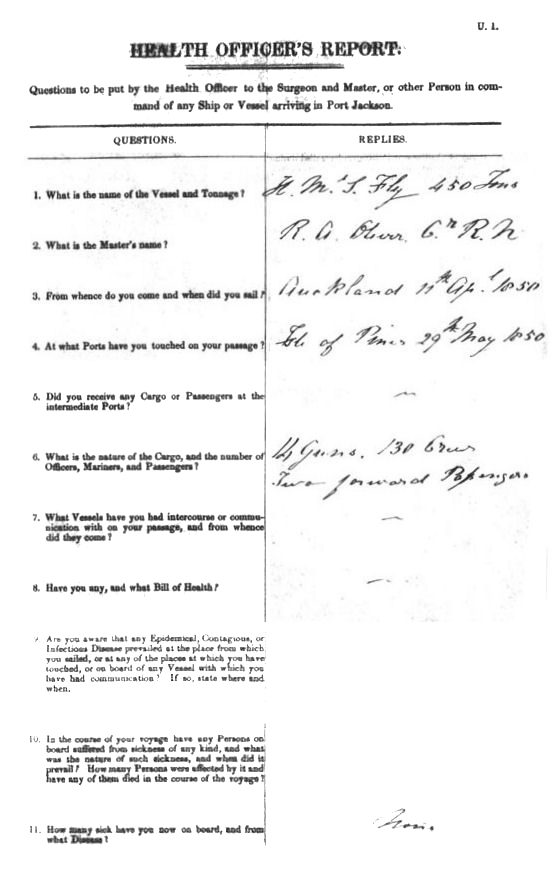 U. 1.
HEALTH OFFICER'S REPORT:
Questions to be put by the Health Officer to the Surgeon and Master, or other Person in com-
mand of any Ship or Vessel arriving in Port Jackson.
QUESTIONS.
REPLIES.
1. What is the name of the Vessel and Tonnage?
H. M. S. Fly 450 Tons
2. What is the Master's name?
R. A. Oliver. Cn R. N
3. From whence do you come and when did you sail?
Auckland 11th Apl. 1850
4. At what Ports have you touched on your passage?
Isle of Pines 29th May 1850
5. Did you receive any Cargo or Passengers at the
intermediate Ports?
6. What is the nature of the Cargo, and the number of
Officers, Mariners, and Passengers?
14 Guns. 130 Crew
Two forward Passengers
7. What Vessels have you had intercourse or commu-
nication with on your passage, and from whence
did they come?
8. Have you any, and what Bill of Health?
9. Are you aware that any Epidemical, Contagious, or
Infectious Disease prevailed at the place from which
you sailed, or at any of the places at which you have
touched, or on board of any Vessel with which you
have had communication? If so, state where and
when.
10. In the course of your voyage have any Persons on
board suffered from sickness of any kind, and what
was the nature of such sickness, and when did it
prevail? How many Persons were affected by it and
have any of them died in the course of the voyage?
11. How many sick have you now on board, and from
what Disease?
None